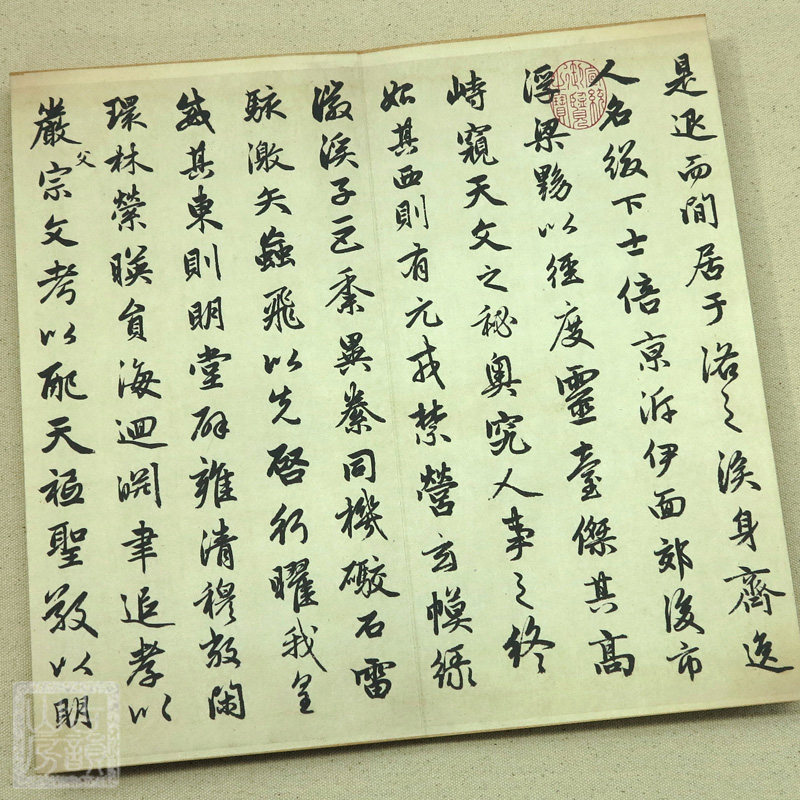 是退而間居于洛之涘身齊逸
人名綴下士倍京泝伊面郊後市
浮梁黝以徑度靈臺傑其高
峙窺天文之秘奧究人事之終
始其西則有元戎禁營玄幙綠
徽溪子巨黍異絭同機礮石雷
駭激矢蝱飛以先啓行曜我皇
威其東則明堂辟雍清穆敞閑
環林縈暎員海迴淵聿追孝以
嚴父宗文考以配天祗聖敬以明
宣統御覽之寶